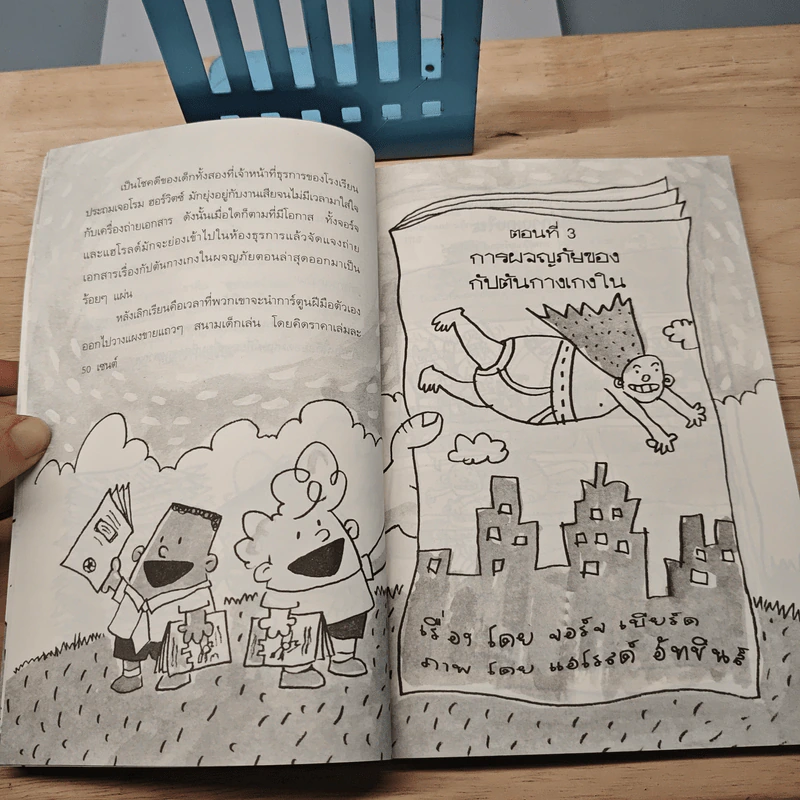 เป็นโชคดีของเด็กทั้งสองที่เจ้าหน้าที่ธุรการของโรงเรียน
ประถมเจอโรม ฮอร์วิตซ์ มักยุ่งอยู่กับงานเสียจนไม่มีเวลามาใส่ใจ
กับเครื่องถ่ายเอกสาร ดังนั้นเมื่อใดก็ตามที่มีโอกาส ทั้งจอร์จ
และแฮโรลด์มักจะย่องเข้าไปในห้องธุรการแล้วจัดแจงถ่าย
เอกสารเรื่องกัปตันกางเกงในผจญภัยตอนล่าสุดออกมาเป็น
ร้อยๆ แผ่น
หลังเลิกเรียนคือเวลาที่พวกเขาจะนำการ์ตูนฝีมือตัวเอง
ออกไปวางแผงขายแถวๆ สนามเด็กเล่น โดยคิดราคาเล่มละ
50 เซนต์
ตอนที่ 3
การผจญภัยของ
กัปตันกางเกงใน
เรื่อง โดย จอร์จ เบียร์ด
ภาพ โดย แฮโรลด์ ฮัทชินส์